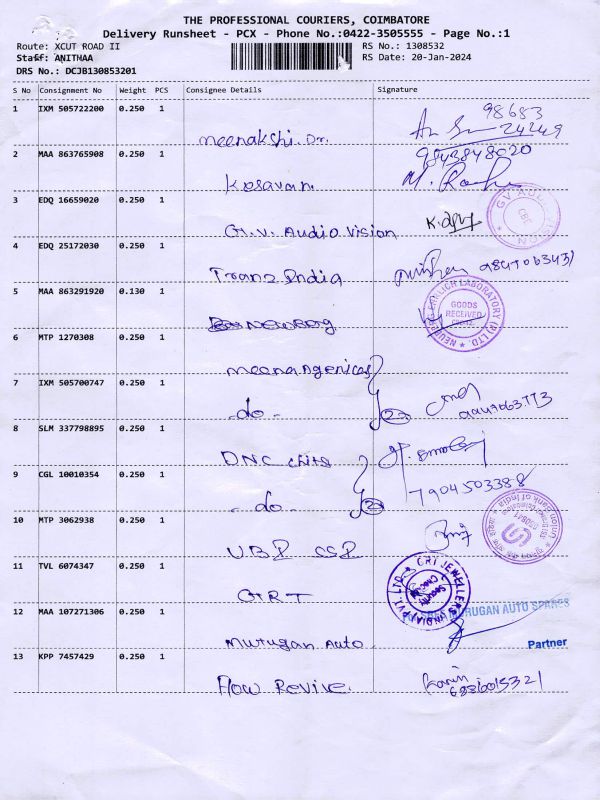 THE PROFESSIONAL COURIERS, COIMBATORE
Delivery Runsheet - PCX - Phone No.:0422-3505555 - Page No.:1
Route: XCUT ROAD II
RS No.: 1308532
Staff: ANITHAA
RS Date: 20-Jan-2024
DRS No.: DCJB130853201
S No Consignment No Weight PCS Consignee Details Signature
1 IXM 505722200 0.250 1
98683
24249
meenakshi. Dr.
2 MAA 863765908 0.250 1
9843848020
Kesavan
3 EDQ 16659020 0.250 1
G.V. Audio Vision
4 EDQ 25172030 0.250 1
Tranz India
5 MAA 863291920 0.130 1
GOODS RECEIVED
Neuberg
6 MTP 1270308 0.250 1
meena Agenices
7 IXM 505700747 0.250 1
do 2
8 SLM 337798895 0.250 1
DNC chits
9 CGL 10010354 0.250 1
7904503388
do 2
10 MTP 3062938 0.250 1
Union Bank of India
UBI CSI
11 TVL 6074347 0.250 1
GRT JEWELLERS (INDIA) PVT. LTD.
Security
GRT
12 MAA 107271306 0.250 1
MURUGAN AUTO SPARES
Murugan Auto
Partner
13 KPP 7457429 0.250 1
Flow Revive.